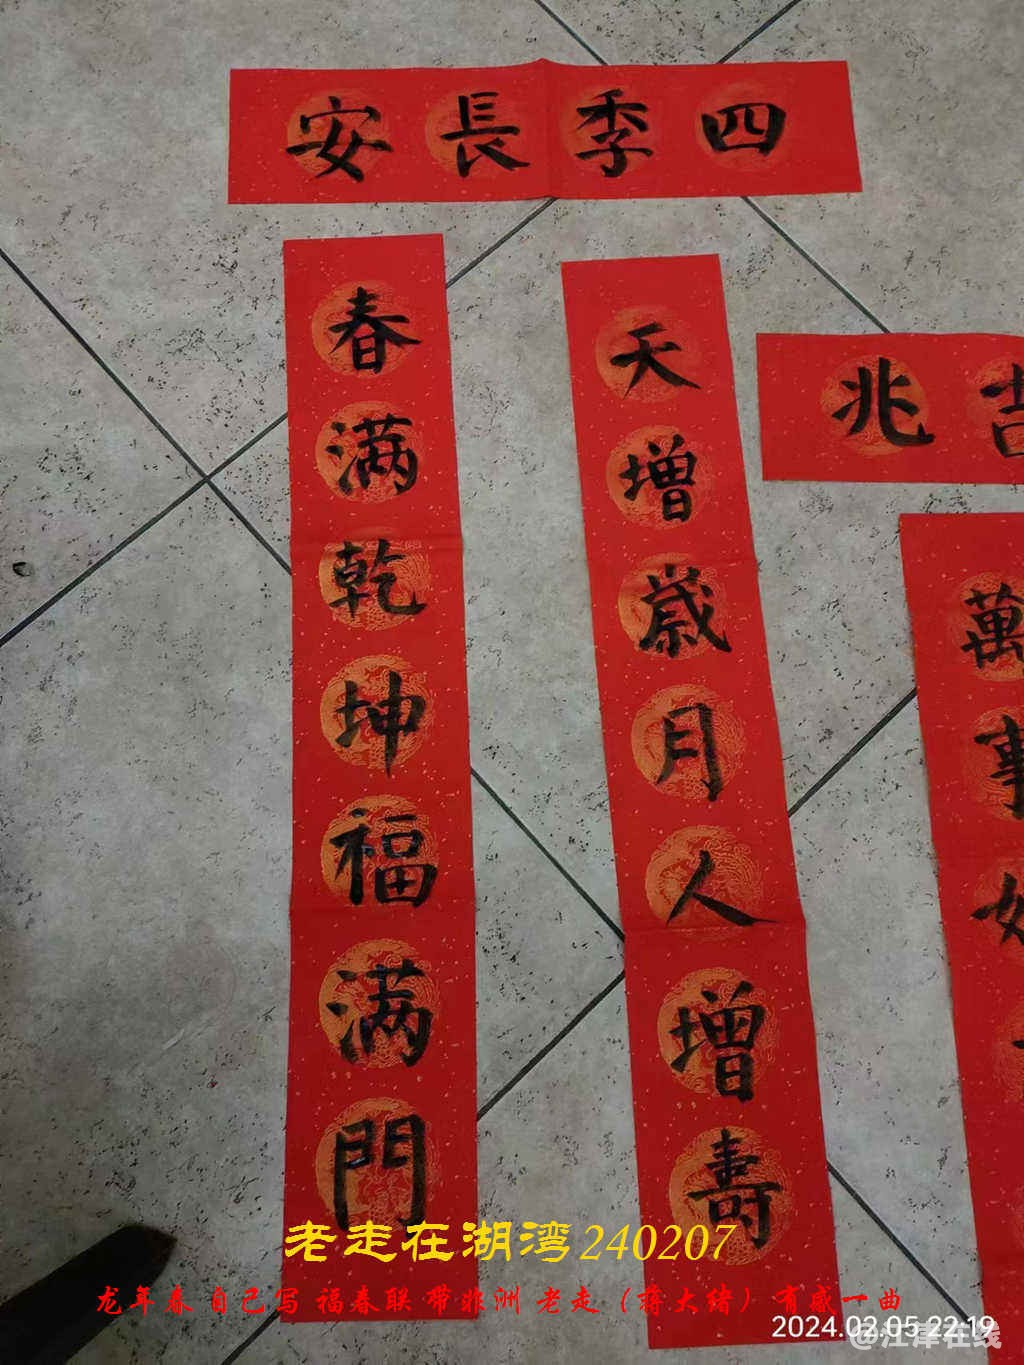 安長季四
天增歲月人增壽
春满乾坤福满門
兆吉
萬事
老走在湖湾240207
龙年春 自己写 福春联 带非洲 老走（蒋大绪）有感一曲
2024.02.05 22:19
@江津在线